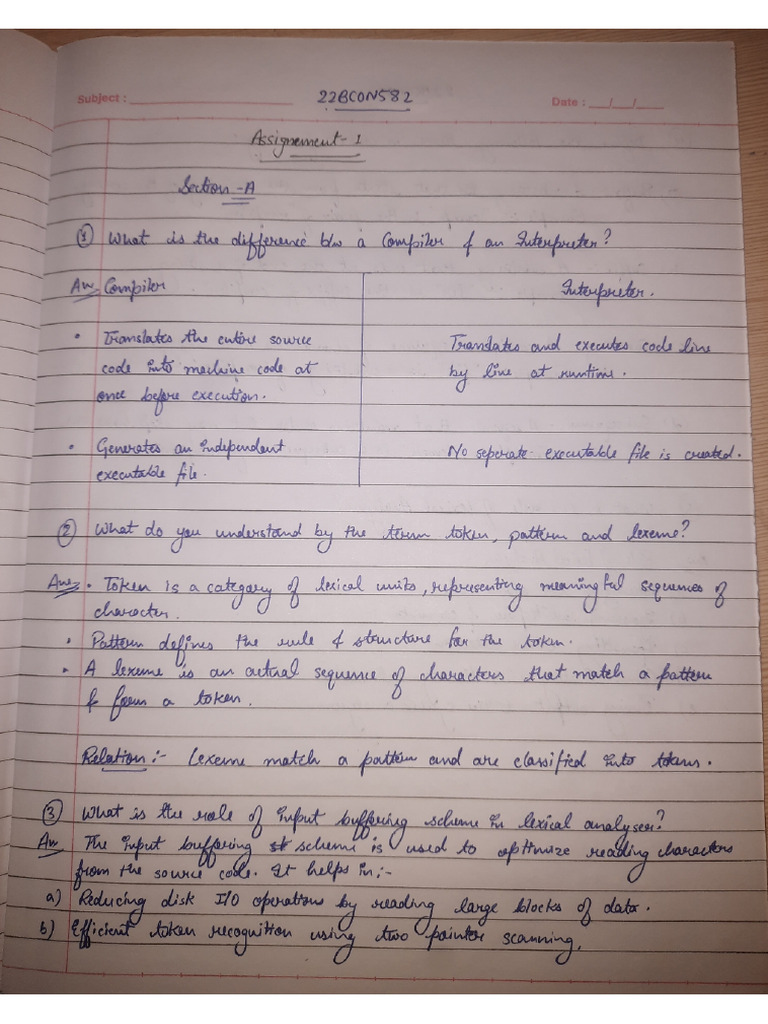 Subject : 22BCON582 Date : __/__/__
Assignement-1
Section-A
① What is the difference b/w a Compiler & an Interpreter?
Ans Compiler Interpreter.
• Translates the entire source Translates and executes code line
code into machine code at by line at runtime.
once before execution.
• Generates an independent No seperate executable file is created.
executable file.
② What do you understand by the term token, pattern and lexeme?
Ans • Token is a category of lexical units, representing meaningful sequences of
character.
• Pattern defines the rule & structure for the token.
• A lexeme is an actual sequence of characters that match a pattern
& form a token.
Relation:- Lexeme match a pattern and are classified into tokens.
③ What is the role of input buffering scheme in lexical analyser?
Ans The input buffering scheme is used to optimize reading characters
from the source code. It helps in:-
a) Reducing disk I/O operations by reading large blocks of data.
b) Efficient token recognition using two pointer scanning.